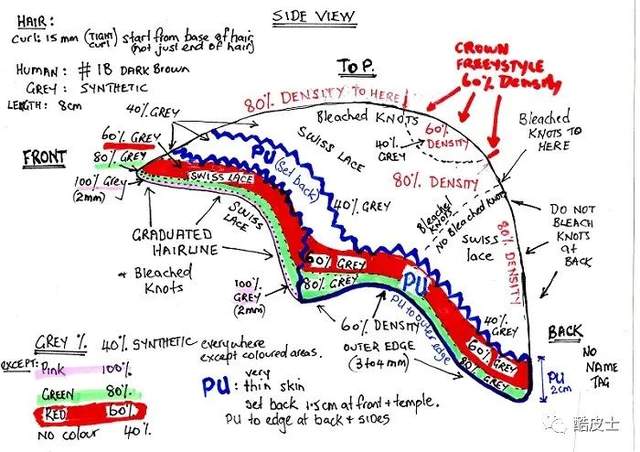 SIDE VIEW
HAIR:
Curl: 15 mm (TIGHT curl) start from base of hair
(not just end of hair)
HUMAN: #1B DARK Brown
GREY: SYNTHETIC
LENGTH: 8cm
TOP.
CROWN
FREESTYLE
60% Density
80% DENSITY TO HERE
40% GREY
60% GREY
80% GREY
100% Grey
(2mm)
FRONT
Bleached KNOTS
SWISS LACE
40% GREY
60% DENSITY
Bleached
KNOTS TO
HERE
PU (Set back)
SWISS LACE
80% DENSITY
40% GREY
SWISS LACE
Bleached KNOTS
NO Bleached KNOTS
SWISS lace
80% DENSITY
DO NOT
BLEACH
KNOTS
at
BACK
GRADUATED
HAIRLINE
+ Bleached
Knots
100%
GREY
(2mm)
60% GREY
80% GREY
PU
PU to outer edge
60% DENSITY
OUTER EDGE
(3 to 4 mm)
40% GREY
60% GREY
80% GREY
BACK
PU
2cm
NO
NAME
TAG
GREY % 40% SYNTHETIC everywhere
except coloured areas.
EXCEPT:
Pink 100%
GREEN 80%
RED 60%
NO colour 40%
PU: very thin skin
Set back 1.5cm at front + temple.
PU to edge at back + sides
酷皮士